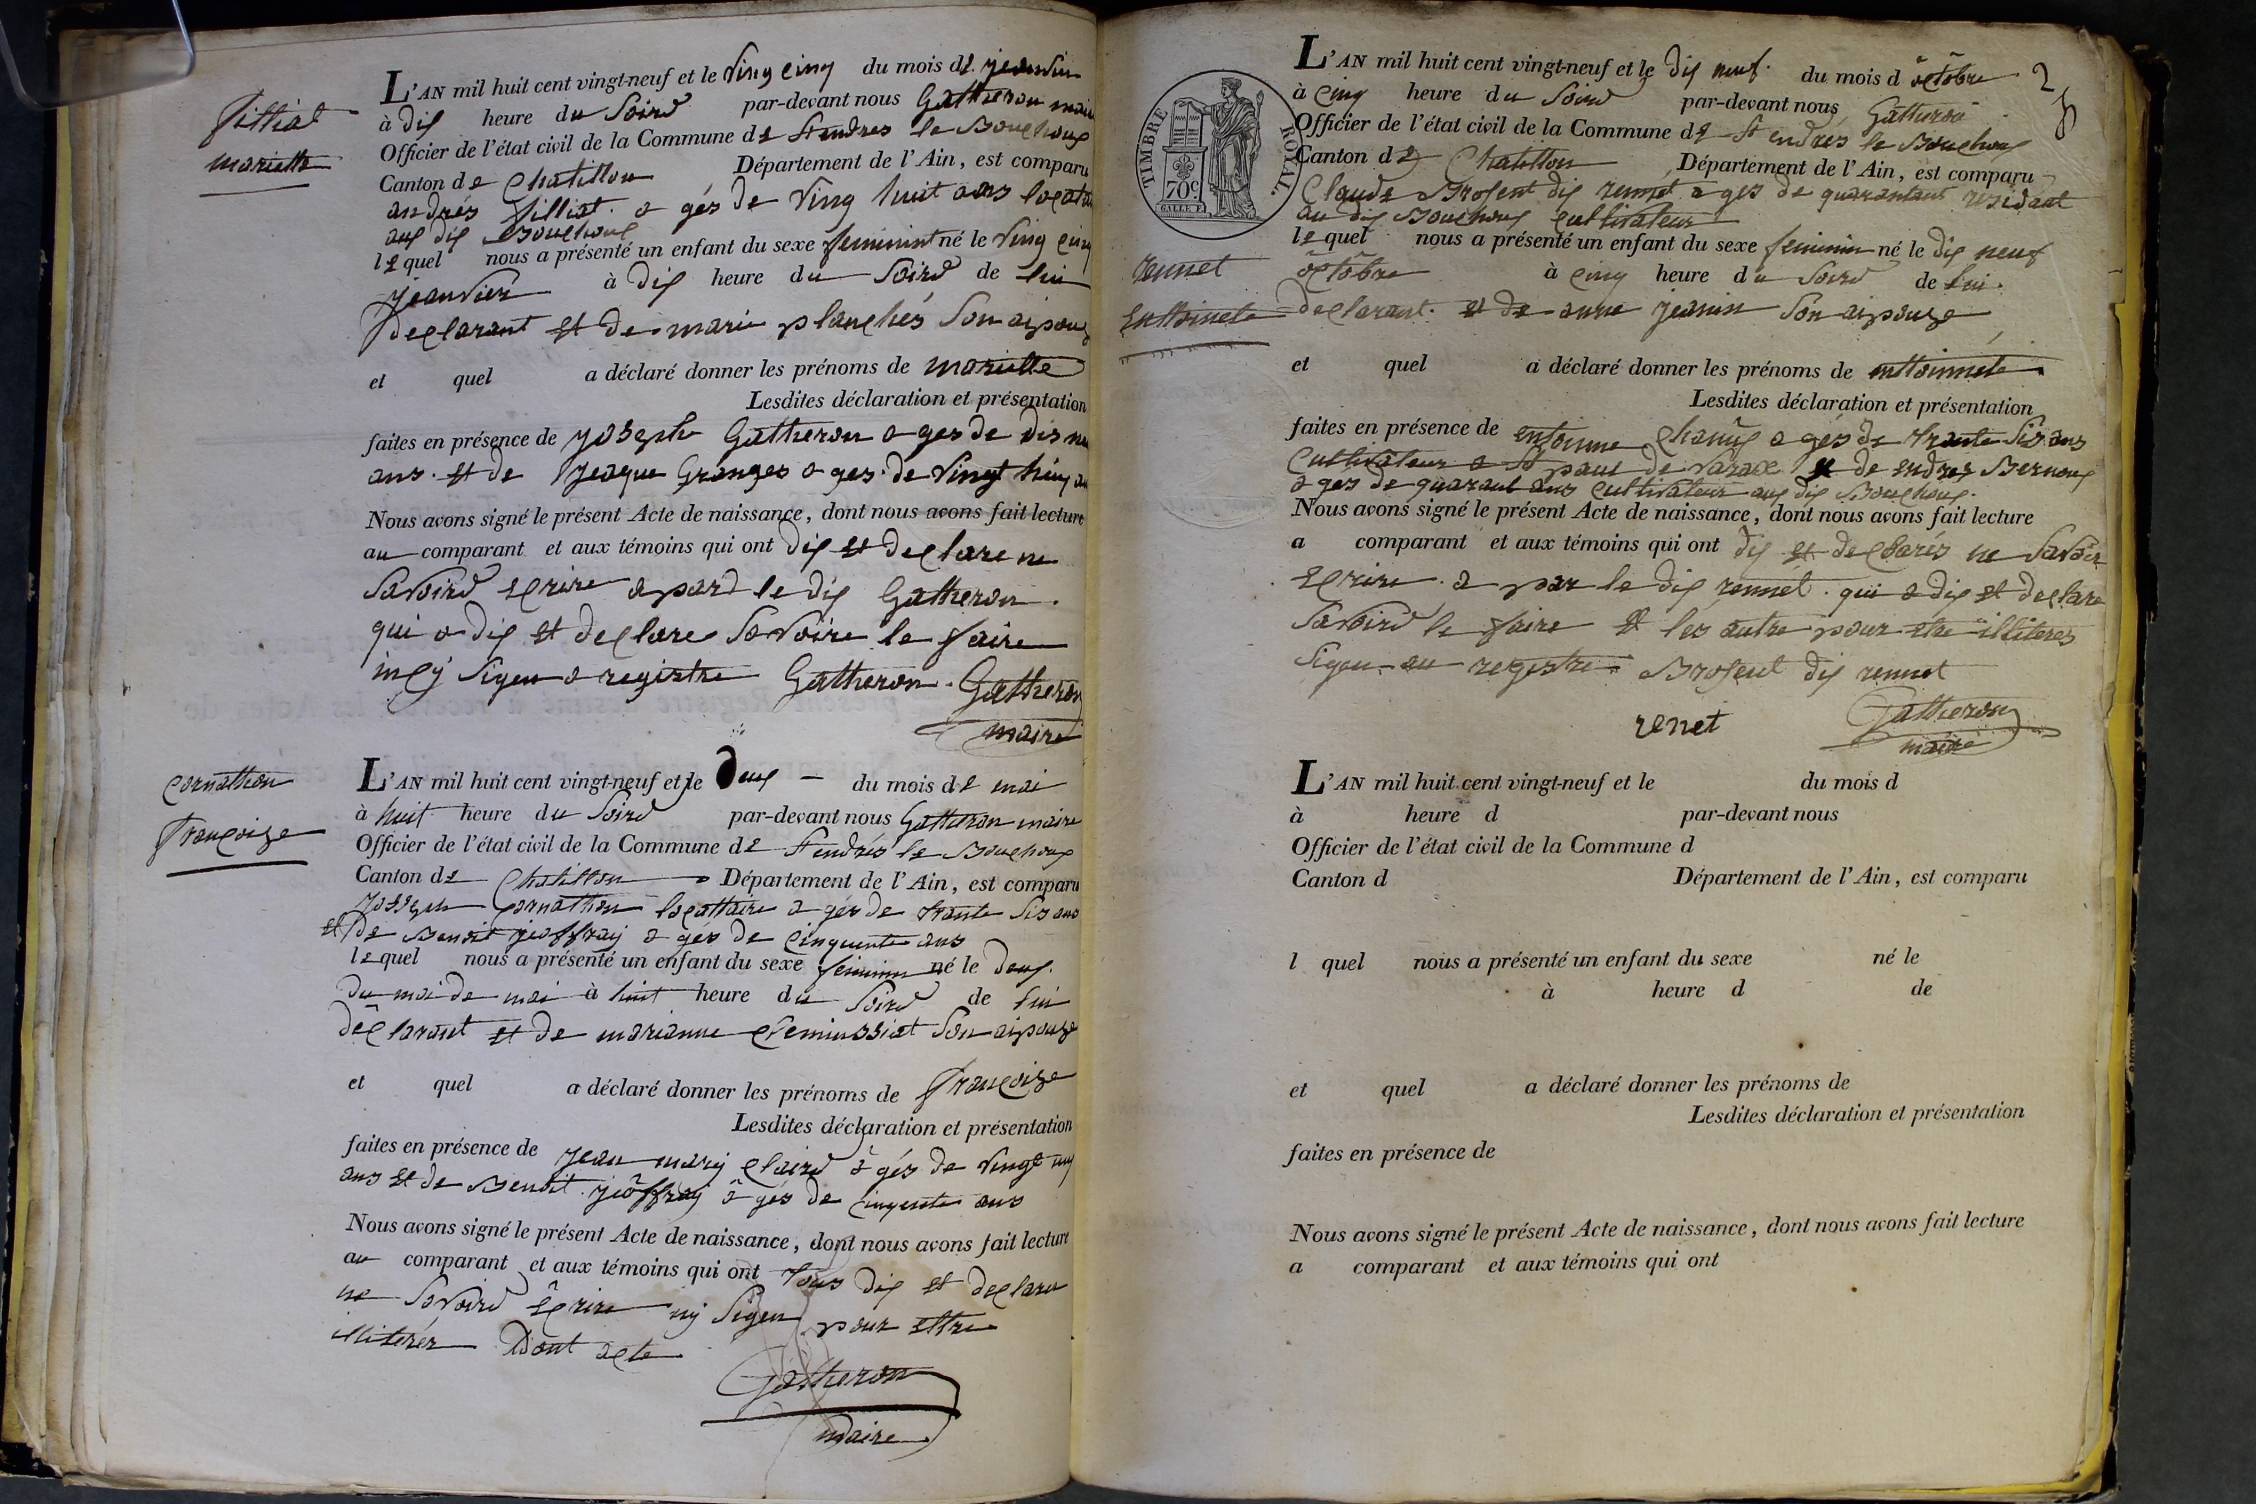 filliat
mariette
L'AN mil huit cent vingt-neuf et le ving cinq du mois de jeanvier
à dix heure du soird par-devant nous Gatheron maire
Officier de l'état civil de la Commune de St endres le Bouchoux
Canton de Chatillon Département de l'Ain, est comparu
andrés filliat a gés de ving huit ans locatai
aux dix Bouchoux
le quel nous a présenté un enfant du sexe feminint né le ving cinq
jeanvier à dix heure du soird de lui
declarant et de marie planchés son aipouze
et quel a déclaré donner les prénoms de mariette
Lesdites déclaration et présentation
faites en présence de joseph Gatheron a ges de dis
ans et de jeaque Granges a ges de vingt
Nous avons signé le présent Acte de naissance, dont nous avons fait lecture
au comparant et aux témoins qui ont dix et declare ne
savoird ecrire a pard le dix Gatheron
qui a dix et declare savoire le faire
sigen a registre Gatheron Gatheron
maire
cornathon
françoize
L'AN mil huit cent vingt-neuf et le deux du mois de mai
à huit heure du soird par-devant nous Gatheron maire
Officier de l'état civil de la Commune de St endrés le Bouchoux
Canton de Chatillon Département de l'Ain, est comparu
joseph Cornathon locattaire a gés de trante sis ans
et de Benoit jeoffray a ges de cinquente ans
le quel nous a présenté un enfant du sexe feminin né le deux
du moi de mai à huit heure du soird de lui
declarant et de marianne son aipouze
et quel a déclaré donner les prénoms de françoize
Lesdites déclaration et présentation
faites en présence de jean mary claird a gés de vingt
ans et de Benoit jeoffray a gés de cinquente ans
Nous avons signé le présent Acte de naissance, dont nous avons fait lecture
au comparant et aux témoins qui ont tous dix et declare
ne savoird ecrire ny sigen pour ettre
illiterer dont acte
Gatheron
maire
2
TIMBRE ROYAL.
70c
L'AN mil huit cent vingt-neuf et le dix neuf du mois d octobre
à cinq heure du soird par-devant nous Gatheron
Officier de l'état civil de la Commune de St endrés le Bouchoux
Canton de Chatillon Département de l'Ain, est comparu
Claude Brosent dix rennet a ges de quarantant residant
au dix Bouchoux cultivateur
le quel nous a présenté un enfant du sexe feminin né le dix neuf
rennet
octobre à cinq heure du soird de lui
enttoinete
declarant et de anne jeanin son aipouze
et quel a déclaré donner les prénoms de enttoinnete
Lesdites déclaration et présentation
faites en présence de entoinne a gés de trante sis ans
cultivateur a St paul de varax et de endres Bernoux
a ges de quarant ans cultivateur aux dix Bouchoux
Nous avons signé le présent Acte de naissance, dont nous avons fait lecture
a comparant et aux témoins qui ont dix et declarés ne savoir
ecrire a par le dix rennet qui a dix et declare
savoird le faire et les autre pour etre illiteres
sigen au registre Brosent dix rennet
renet Gatheron
maire
L'AN mil huit cent vingt-neuf et le du mois d
à heure d par-devant nous
Officier de l'état civil de la Commune d
Canton d Département de l'Ain, est comparu
l quel nous a présenté un enfant du sexe né le
à heure d de
et quel a déclaré donner les prénoms de
Lesdites déclaration et présentation
faites en présence de
Nous avons signé le présent Acte de naissance, dont nous avons fait lecture
a comparant et aux témoins qui ont